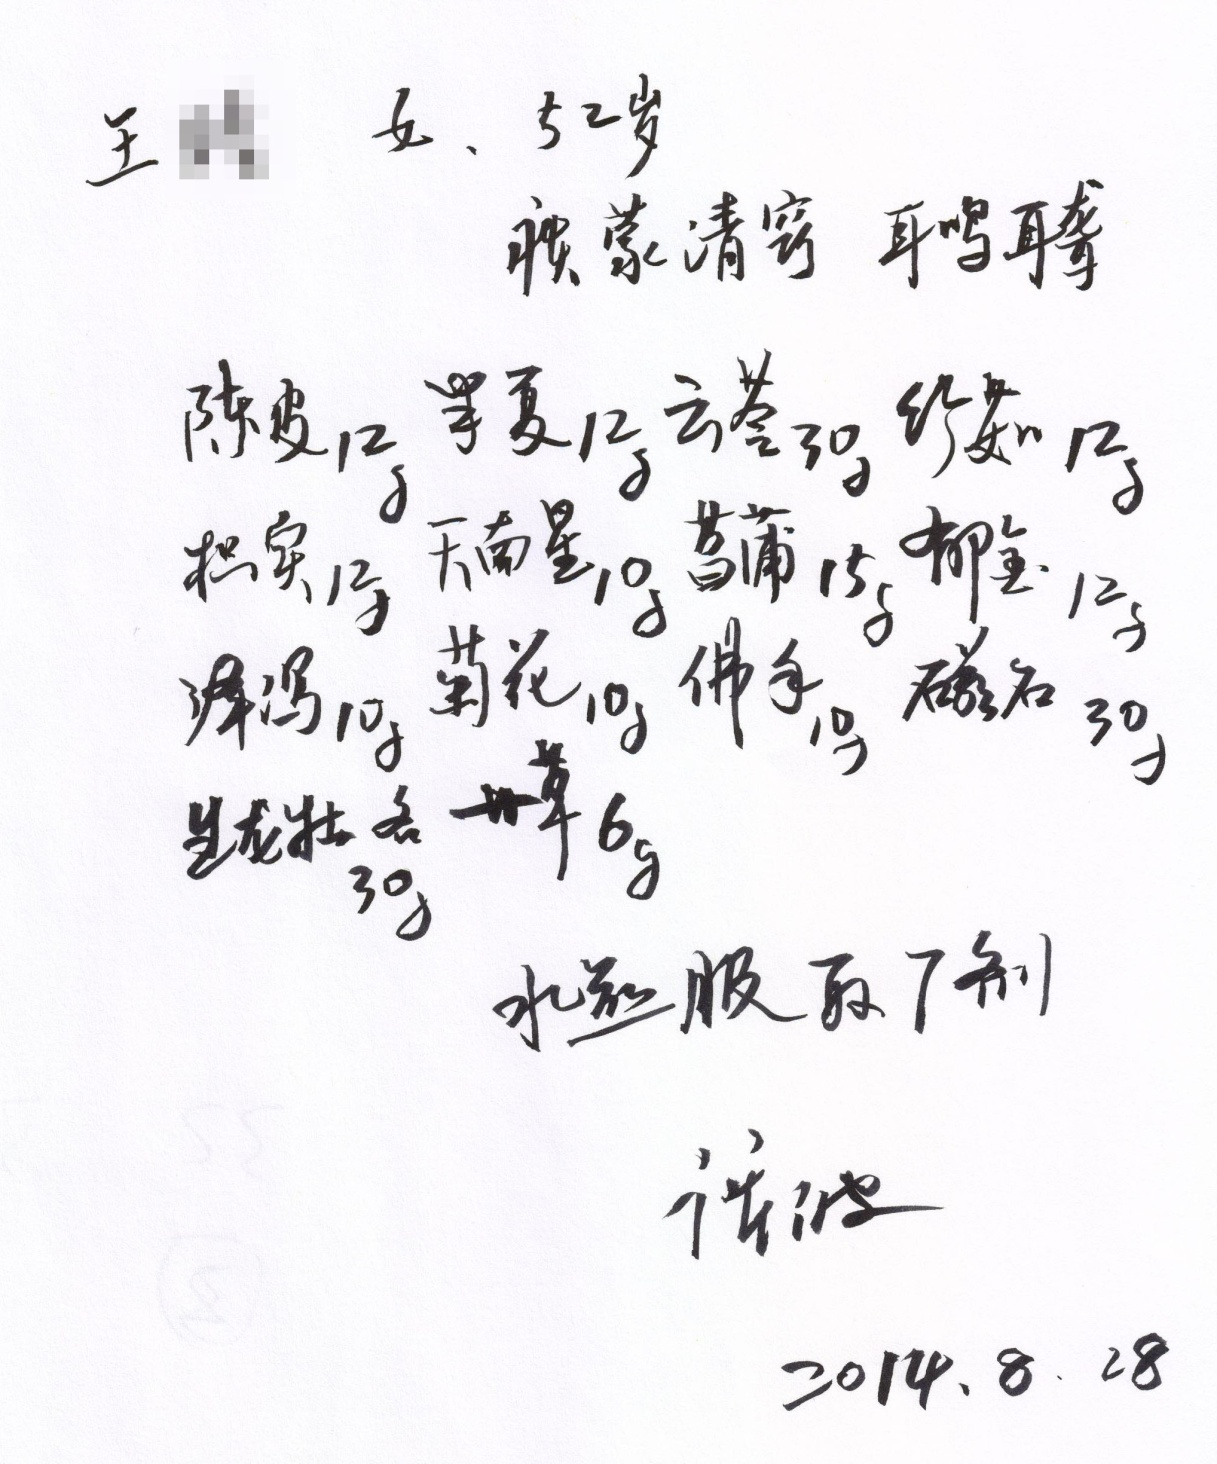 王 女、52岁
痰蒙清窍 耳鸣耳聋
陈皮12g 半夏12g 云苓30g 竹茹12g
枳实12g 天南星10g 菖蒲15g 郁金12g
泽泻10g 菊花10g 佛手10g 磁石30g
生龙牡各30g 甘草6g
水煎服 取7剂
2014.8.28